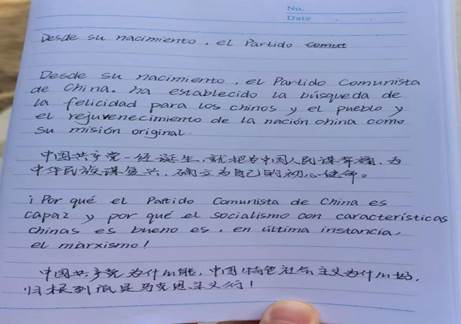 No.
Date
Desde su nacimiento, el Partido comu
Desde su nacimiento, el Partido Comunista
de China. ha establecido la búsqueda de
la felicidad para los chinos y el pueblo y
el rejuvenecimiento de la nación china como
su misión original
中国共产党一经诞生,就把为中国人民谋幸福、为
中华民族谋复兴,确立为自己的初心使命。
¡Por qué el Partido Comunista de China es
capaz y por qué el socialismo con características
chinas es bueno es, en última instancia,
el marxismo!
中国共产党为什么能,中国特色社会主义为什么好,
归根到底是马克思主义行!